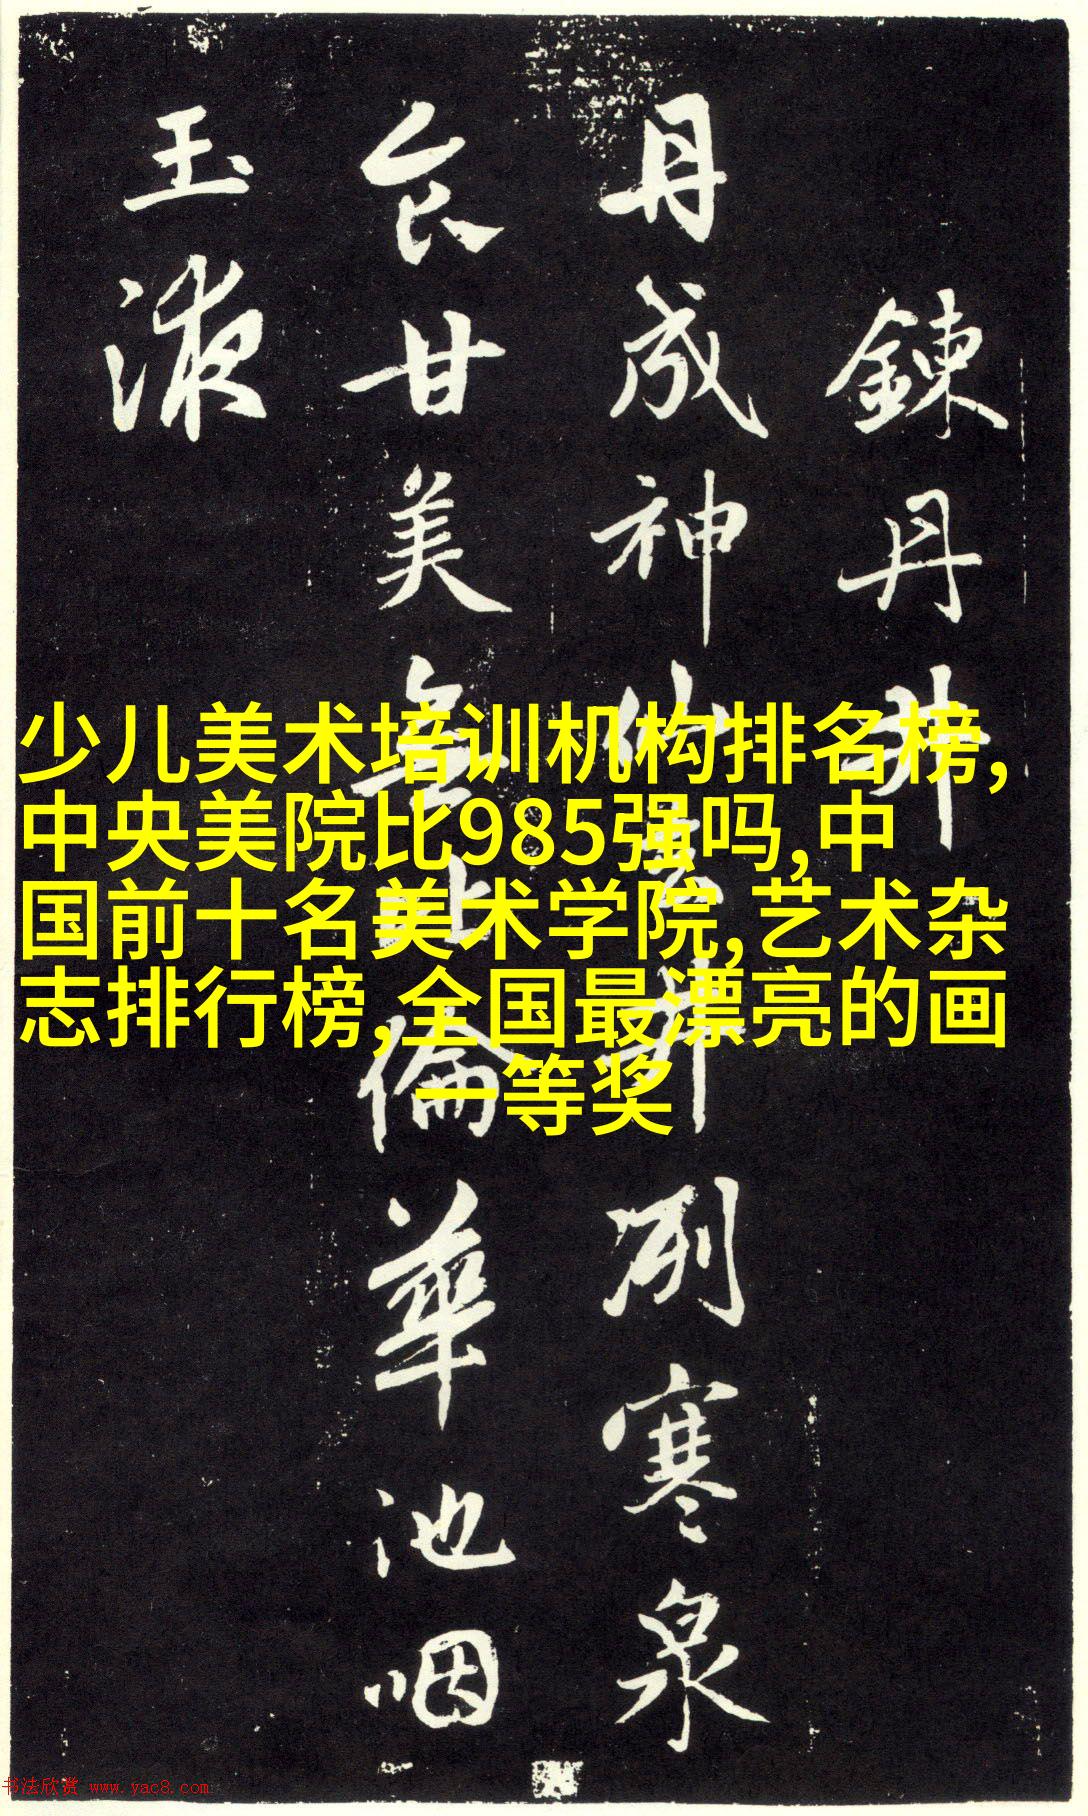 鍊丹井
丹成神仙井冽寒泉
食甘美無比倫華池咽
玉液
少儿美术培训机构排名榜,
中央美院比985强吗,中
国前十名美术学院,艺术杂
志排行榜,全国最漂亮的画
一等奖
书法欣赏 www.yac8.com